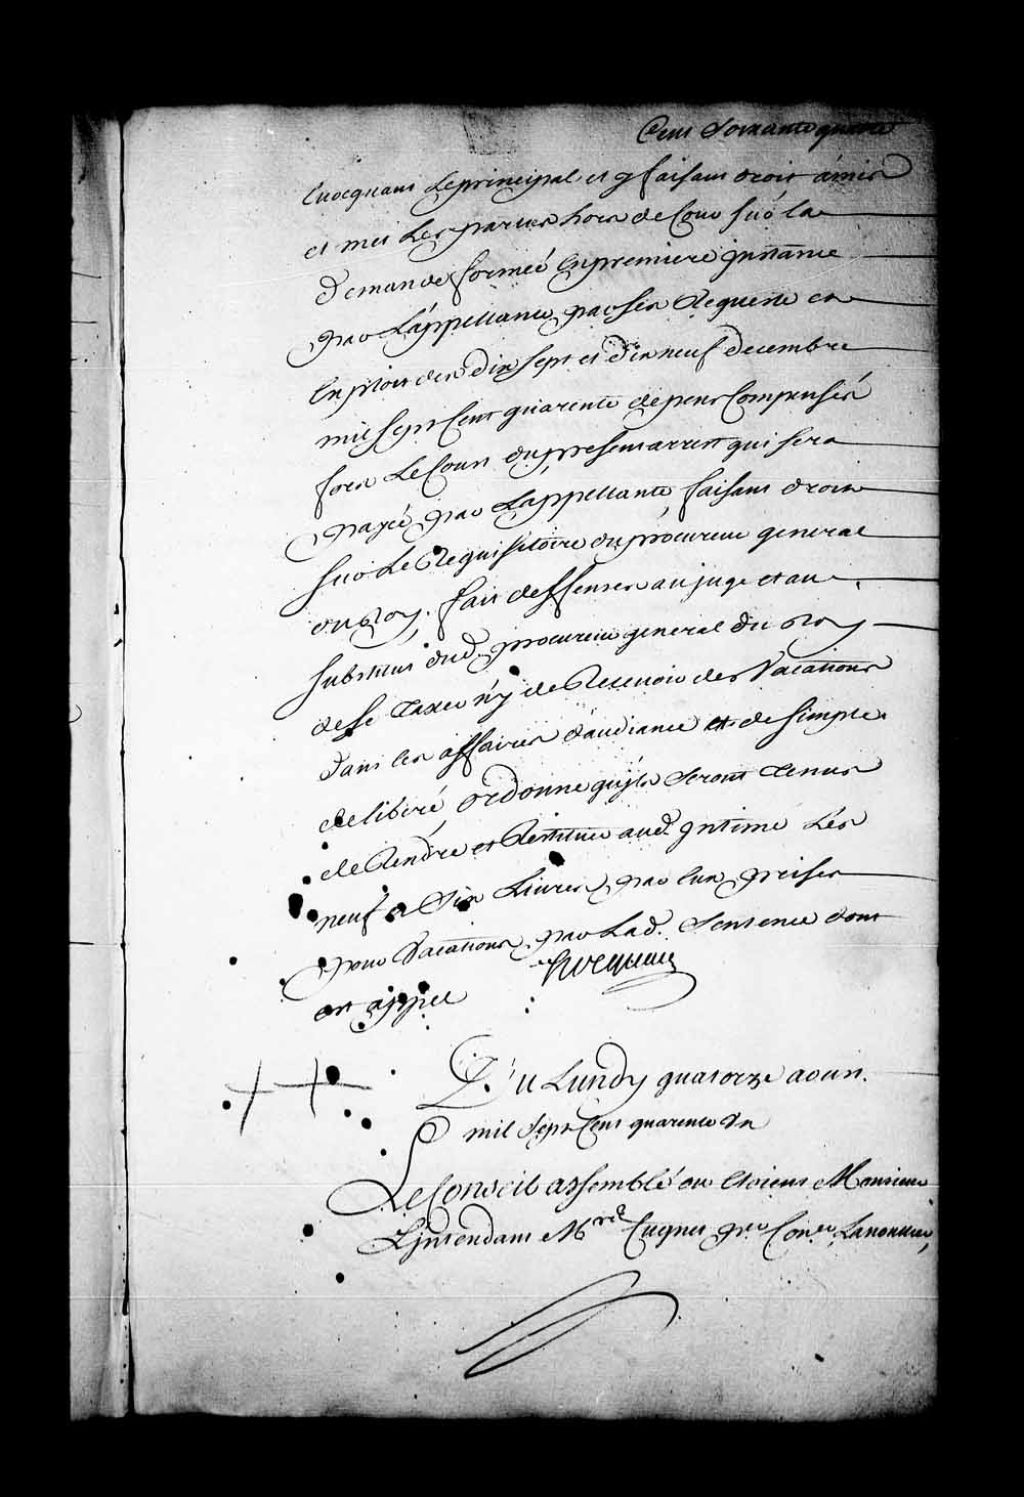 Cent Soixante quatre
Evocquant Le principal et y faisant droit a mis
et met Les parties hors de Cour sur la
demande formeé En premiere jnstance
par L'appellante par ses Requeste et
Exploit des dix sept et dix neuf decembre
mil sept Cent quarente depens Compensés
fors Le Coust du present arrest qui sera
payé par L'appellante, faisant droit
sur Le Requisitoire du procureur general
du Roy, fait deffenses au juge et au
substitut dud. procureur general du Roy
de se taxer n'y de Recevoir des Vacations
dans les affaires d'audiance et de simple
deliberé, ordonne qu'jls seront tenus
de Rendre et Restituer aud. jntimé Les
neuf et six Livres par eux prises
pour Vacations par Lad. Sentence dont
est appel Hocquart
Du Lundy quatorze aoust
mil Sept Cent quarente un
Le Conseil assemblé ou etoient Monsieur
L'jntendant Mrs Cugnet pr Coner Lanouiller,